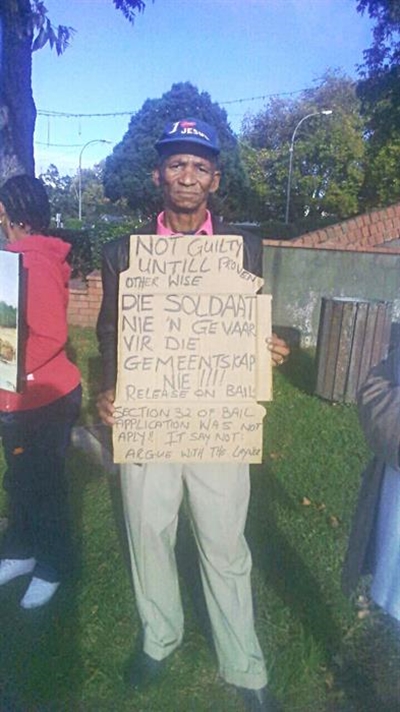 I JESUS
NOT GUILTY
UNTILL PROVEN
OTHER WISE
DIE SOLDAAT
NIE 'N GEVAAR
VIR DIE
GEMEENTSKAP
NIE !!!!
RELEASE ON BAIL
SECTION 32 OF BAIL
APPLICATION WAS NOT
APLY!! IT SAY NOT:
ARGUE WITH THE